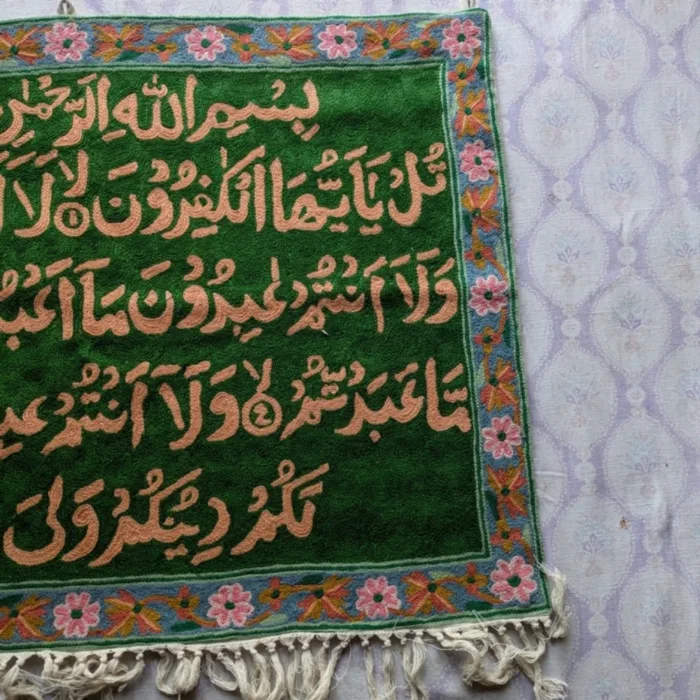 بِسْمِ اللّٰهِ الرَّحْمٰنِ
قُلْ يٰۤاَيُّهَا الْكٰفِرُوْنَ ۙ‏﴿۱﴾ لَاۤ
وَلَاۤ اَنْتُمْ عٰبِدُوْنَ مَاۤ اَعْبُ
مَّا عَبَدْتُّمْ ۙ‏﴿۴﴾ وَلَاۤ اَنْتُمْ عٰبِ
لَكُمْ دِيْنُكُمْ وَلِىَ